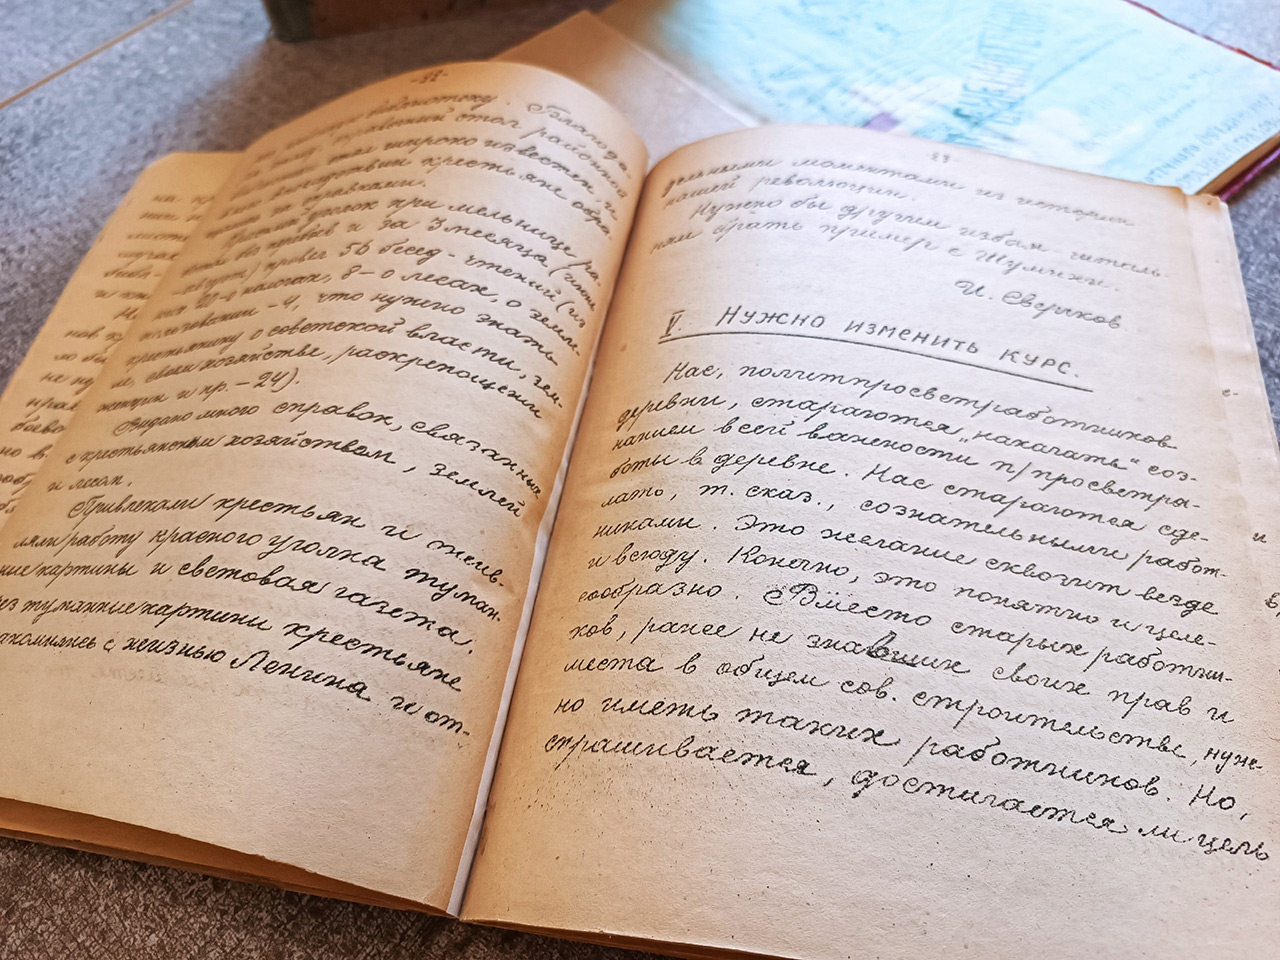 -22-
библиотеку. Благода-
справочный стол районной
стал широко известен, и
впоследствии крестьяне обра-
за справками.
уголок при мельнице ра-
и за 3 месяца (июнь
-август) провел 56 бесед-чтений (из
них 20-о налогах, 8-о лесах, о земле-
пользовании-4, что нужно знать
крестьянину о советской власти, зем-
ле, своем хозяйстве, раскрепощении
женщин и пр.-24).
Выдано много справок, связанных
с крестьянским хозяйством, землей
и лесах.
Привлекали крестьян и ожив-
ляли работу красного уголка туман-
ные картины и световая газета.
Через туманные картины крестьяне
знакомились с жизнью Ленина и от-
23
дельными моментами из истории
нашей революции.
Нужно бы другим избам читаль-
ням брать пример с Шумихи.
И. Сверчков.
V. НУЖНО ИЗМЕНИТЬ КУРС.
Нас, политпросветработников
деревни, стараются „накачать“ соз-
нанием всей важности п/просветра-
боты в деревне. Нас стараются сде-
лать, т. сказ., сознательными работ-
никами. Это желание сквозит везде
и всюду. Конечно, это понятно и целе-
сообразно. Вместо старых работни-
ков, ранее не знавших своих прав и
места в общем сов. строительстве, нуж-
но иметь таких работников. Но,
спрашивается, достигается ли цель